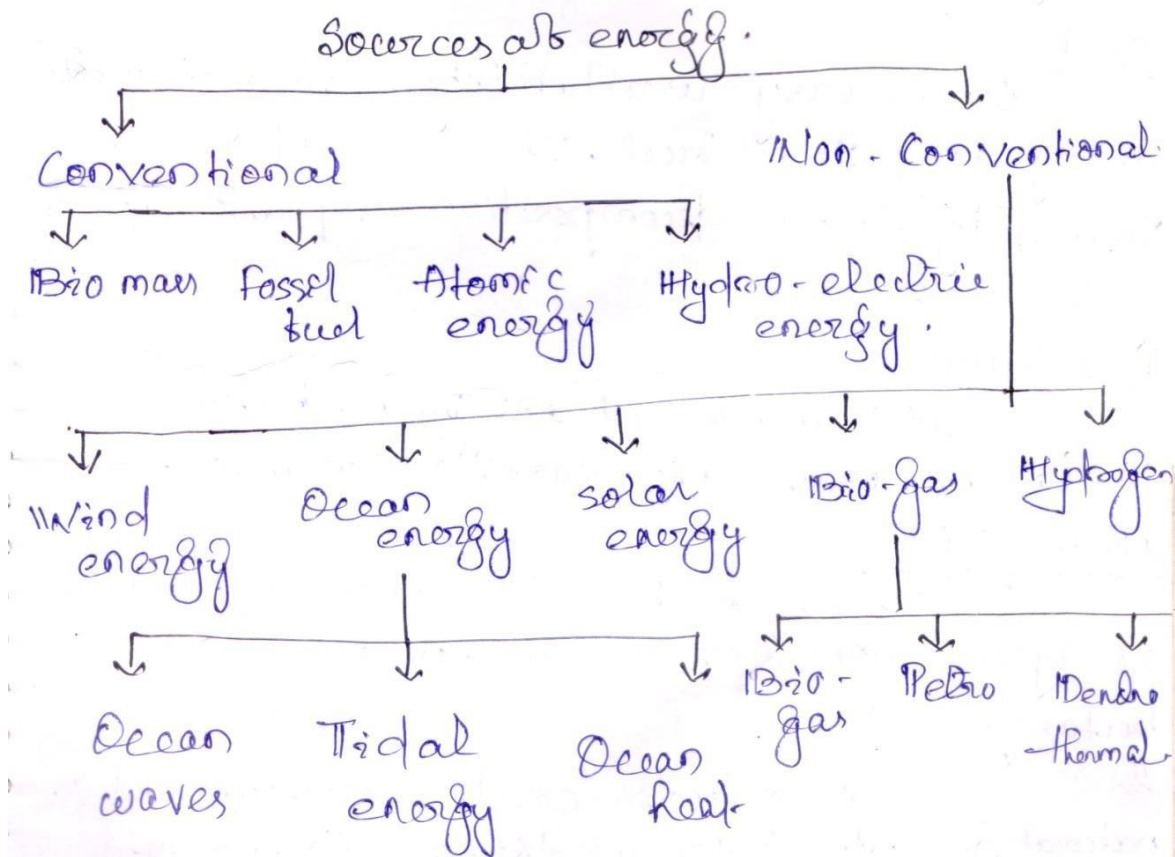 Sources of energy.
Conventional
Non-Conventional.
Bio mass
Fossel
fuel
Atomic
energy
Hydro-electric
energy.
Wind
energy
Ocean
energy
Solar
energy
Bio-gas
Hydrogen
Ocean
waves
Tidal
energy
Ocean
heat
Bio-
gas
Petro
Dendro
thermal.